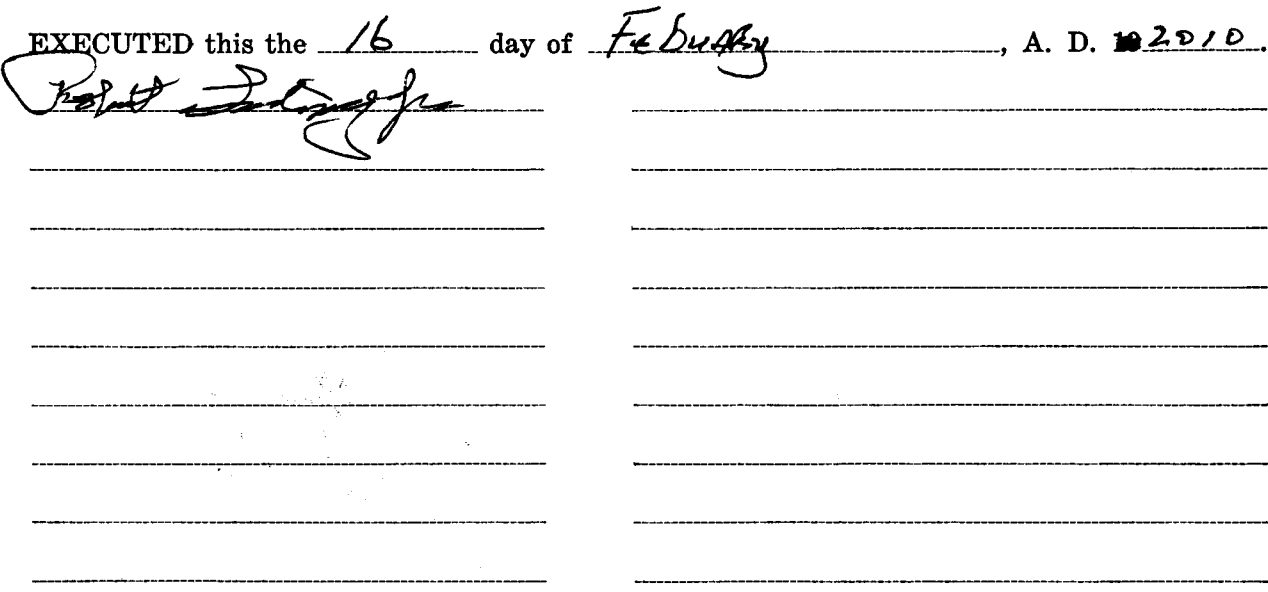 EXECUTED this the 16 day of Febuary, A. D. 2010.
Robert